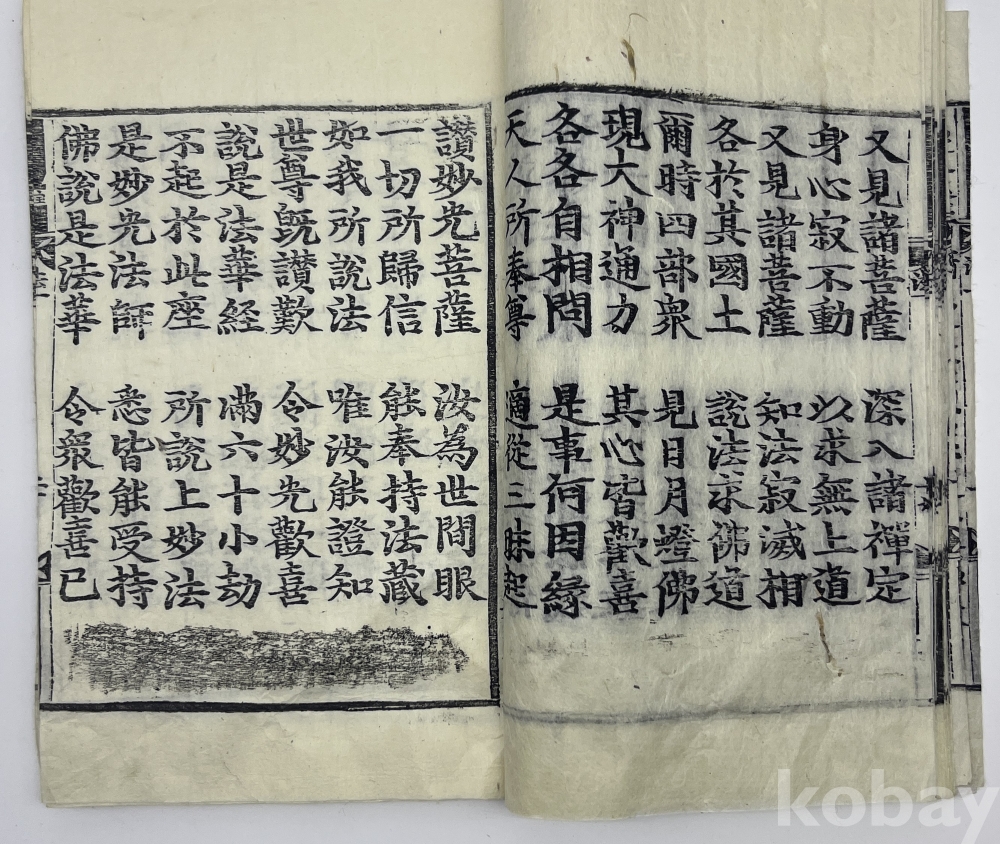 又見諸菩薩 深入諸禪定
身心寂不動 以求無上道
又見諸菩薩 知法寂滅相
各於其國土 說法求佛道
爾時四部衆 見日月燈佛
現大神通力 其心皆歡喜
各各自相問 是事何因緣
天人所奉尊 適從三昧起
讃妙光菩薩 汝為世間眼
一切所歸信 能奉持法藏
如我所說法 唯汝能證知
世尊旣讃歎 令妙光歡喜
說是法華經 滿六十小劫
不起於此座 所說上妙法
是妙光法師 悉皆能受持
佛說是法華 令衆歡喜已
kobay